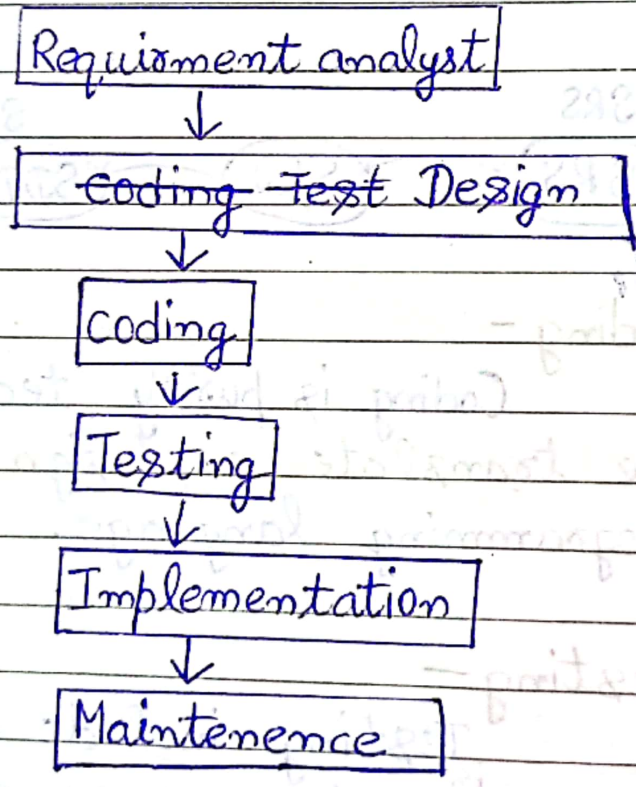 Requirment analyst
Coding Test Design
Coding
Testing
Implementation
Maintenence